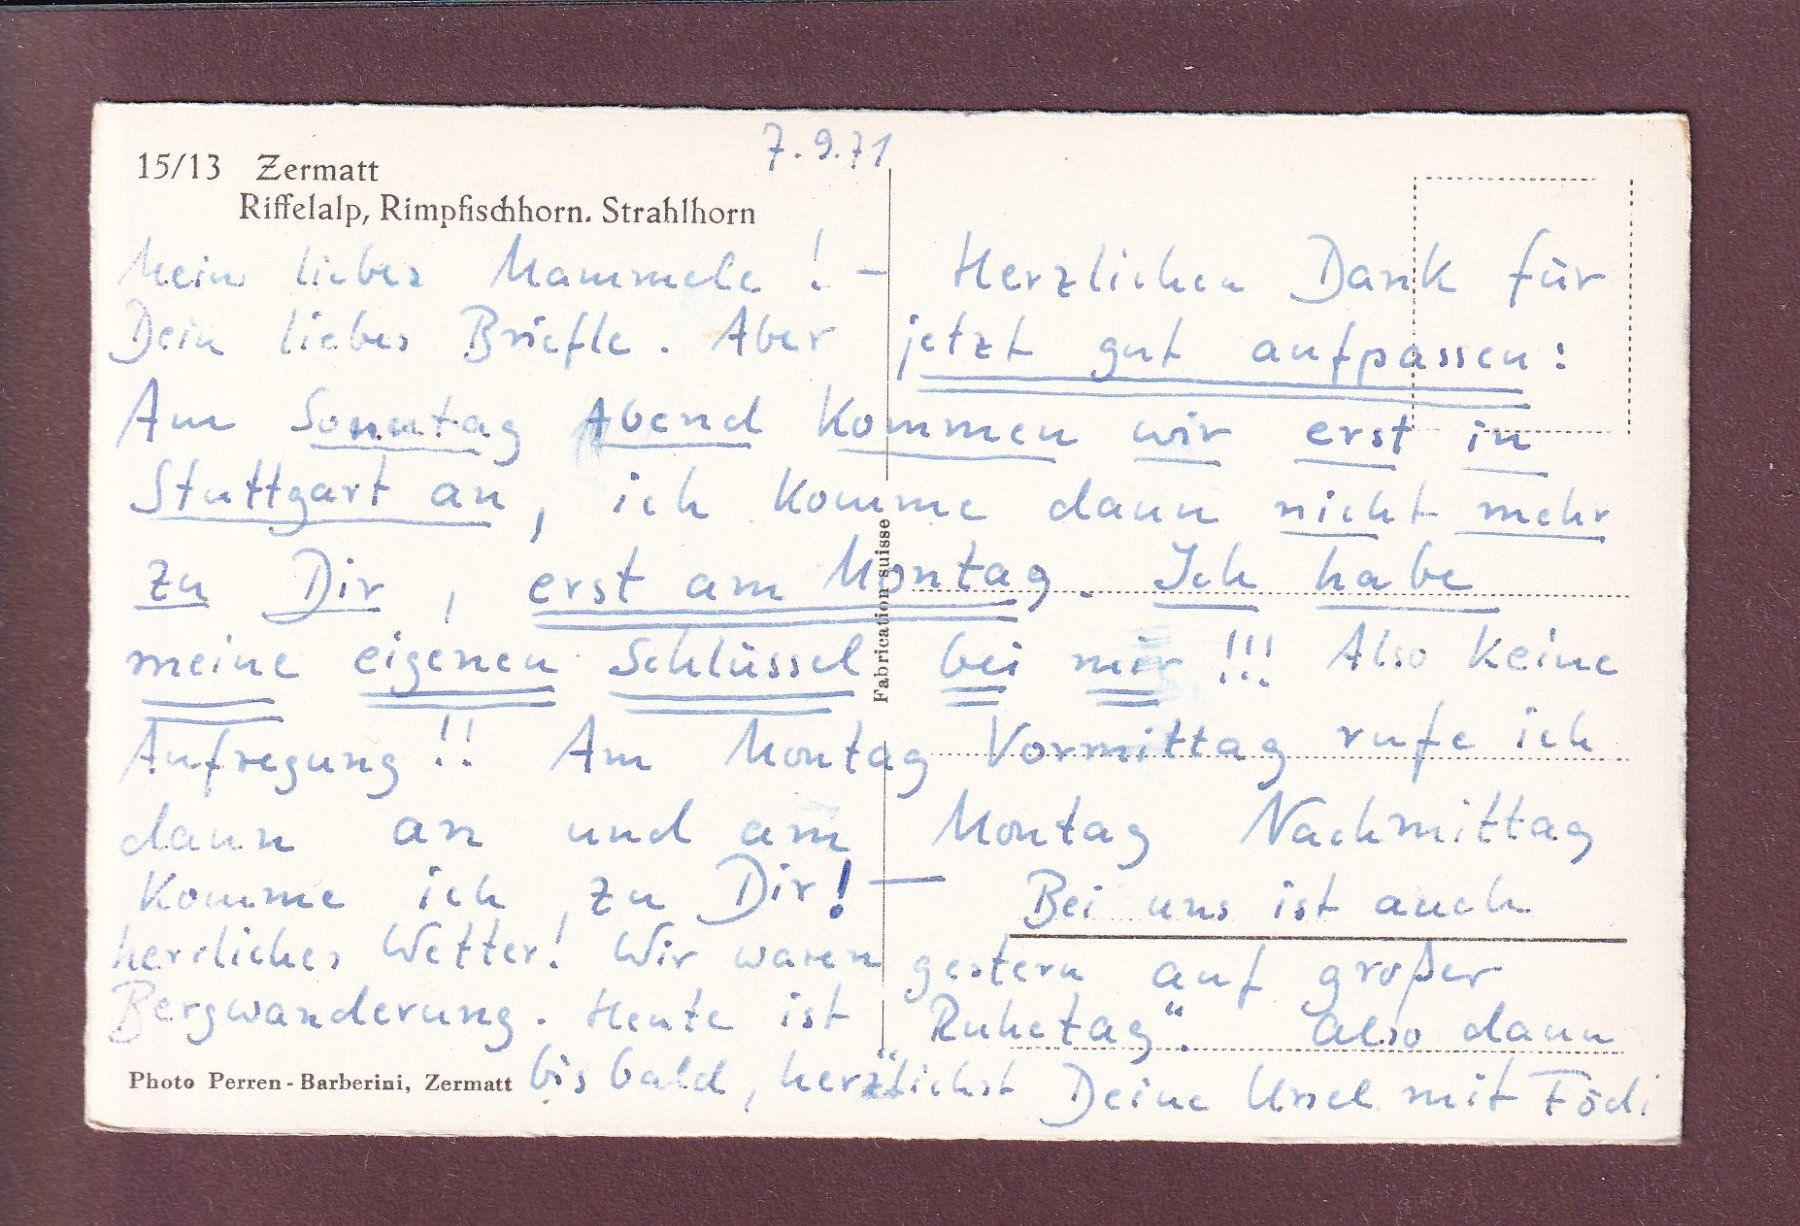 7.9.71
15/13 Zermatt
Riffelalp, Rimpfischhorn. Strahlhorn
Mein liebes Mammele! – Herzlichen Dank für
Dein liebes Briefle. Aber jetzt gut aufpassen:
Am Sonntag Abend kommen wir erst in
Stuttgart an, ich komme dann nicht mehr
zu Dir, erst am Montag. Ich habe
meine eigenen Schlüssel bei mir!!! Also keine
Aufregung!! Am Montag Vormittag rufe ich
dann an und am Montag Nachmittag
komme ich zu Dir! — Bei uns ist auch
herrliches Wetter! Wir waren gestern auf großer
Bergwanderung. Heute ist „Ruhetag“. Also dann
bis bald, herzlichst Deine Ursel mit Födi
Photo Perren-Barberini, Zermatt
Fabrication suisse